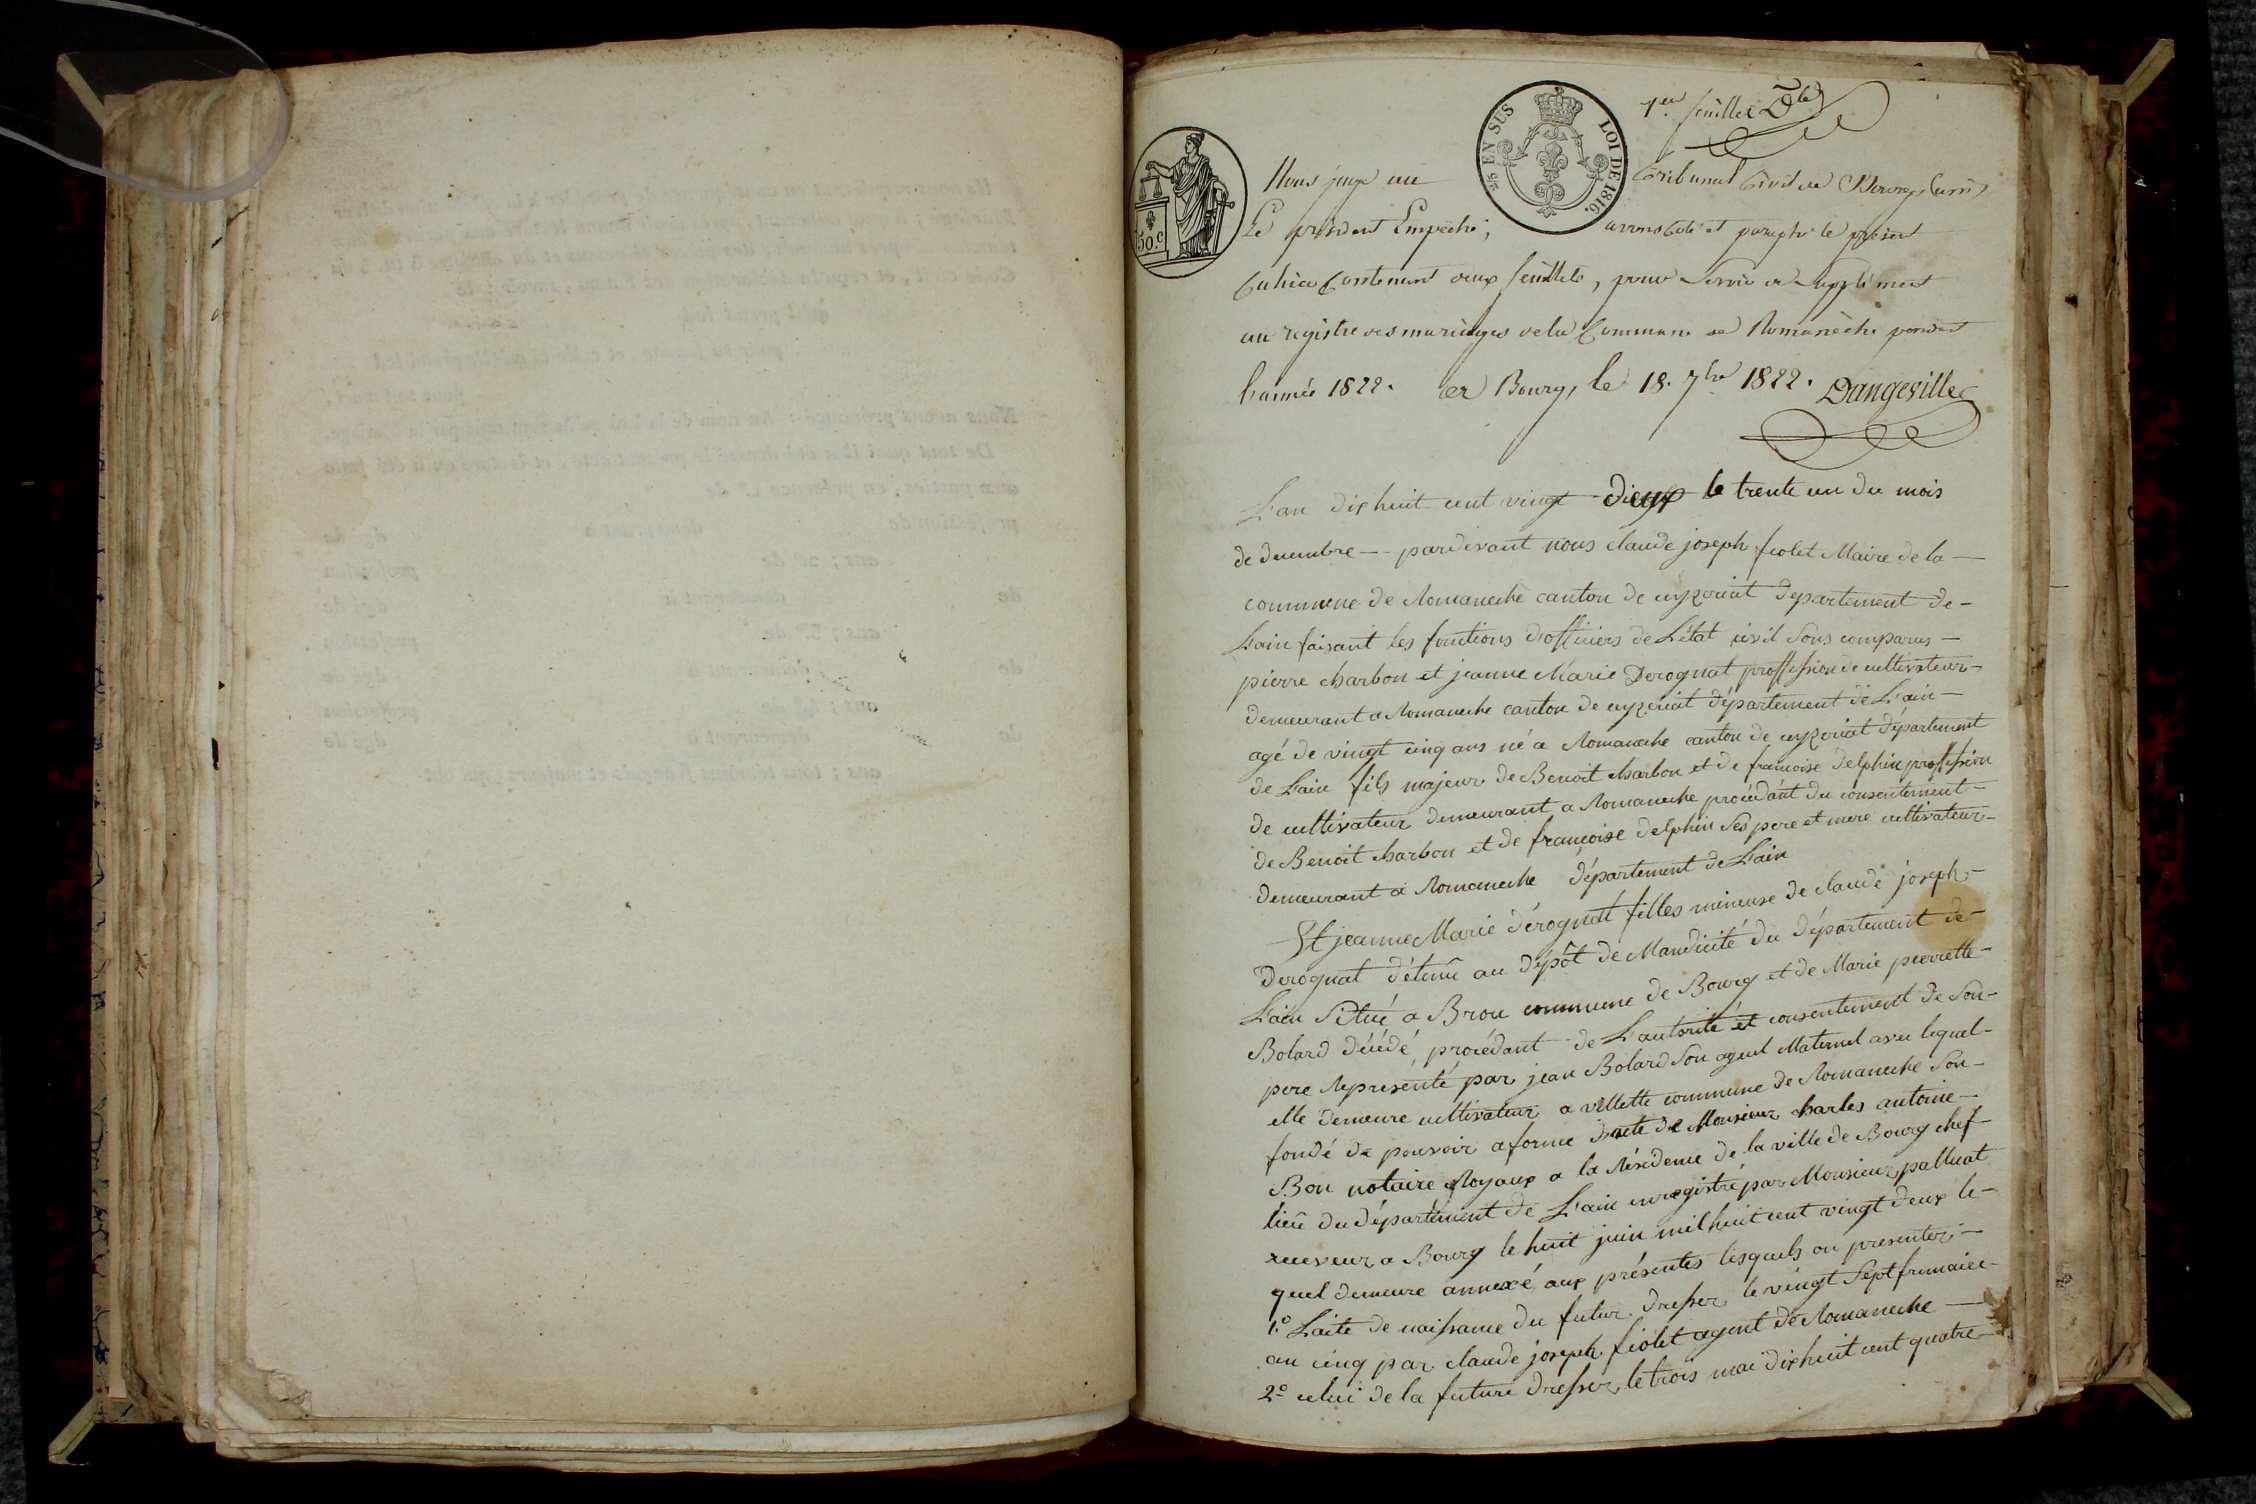 1er feuillet
2/5 EN SUS LOI DE 1816.
50.c
Nous juge au Tribunal Civil de Bourg,
Le président Empêché, avons coté et paraphé le présent
Cahier Contenant deux feuillets, pour Servir de Supplément
au registre des mariages de la Commune de Romanèche pendant
l'année 1822. à Bourg, le 18. 7bre 1822. Dangeville
L'an dix huit cent vingt - dieux le trente un du mois
de decembre - pardevant nous claude joseph fiolet Maire de la -
commune de Romaneche canton de ceyzeriat departement de -
L'ain faisant les fonctions d'officiers de L'état civil Sons comparus -
pierre charbon et jeanne Marie Derognat proffession de cultivateur -
demeurant a Romaneche canton de ceyzeriat département de L'ain -
agé de vingt cinq ans né a Romaneche canton de ceyzeriat département
de L'ain fils majeur de Benoit charbon et de francoise Delphin proffession
de cultivateur demeurant a Romaneche procédant du consentement -
de Benoit charbon et de françoise delphin Ses pere et mere cultivateur -
demeurant a Romaneche département de L'ain
Et jeanne Marie dérognat filles mineuse de claude joseph -
Derognat détenu au dépôt de Mandicité du département de -
L'ain Situé a Brou commune de Bourg et de Marie pierrette -
Bolard décédé, procédant de L'autorité et consentement de Son -
pere Représenté par jean Bolard Son ayeul Maternel avec lequel -
elle demeure cultivateur a villette commune de Romaneche Son -
fondé de pouvoir a forme d'acte de Monsieur charles antoine -
Bon notaire Royaux a la Résidence de la ville de Bourg chef -
lieu du département de L'ain enregistré par Monsieur palluat
receveur a Bourg le huit juin mil huit cent vingt deux le -
quel demeure annexé aux présentes lesquels on presenter -
1.° L'acte de naissance du futur dresser le vingt Sept frimaire -
an cinq par claude joseph fiolet agent de Romaneche -
2.° celui de la future dresser le trois mai dix huit cent quatre -